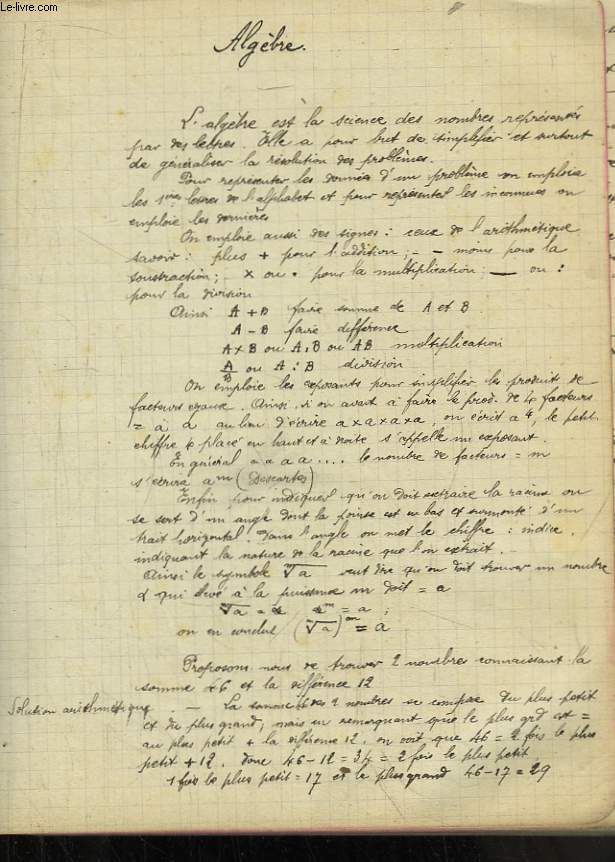 Le-livre.com
Algèbre.
L'algèbre est la science des nombres représentés
par des lettres. Elle a pour but de simplifier et surtout
de généraliser la résolution des problèmes.
Pour représenter les données d'un problème on emploie
les 1ères lettres de l'alphabet et pour représenter les inconnues on
emploie les dernières
On emploie aussi des signes : ceux de l'arithmétique
savoir : plus + pour l'addition ; - moins pour la
soustraction ; × ou . pour la multiplication ; — ou :
pour la division
Ainsi A + B faire somme de A et B
A - B faire différence
A × B ou A . B ou AB multiplication
A/B ou A : B division
On emploie les exposants pour simplifier les produits de
facteurs égaux. Ainsi, si on avait à faire le prod. de 4 facteurs
= à a au lieu d'écrire a × a × a × a, on écrit a⁴, le petit
chiffre 4 placé en haut et à droite s'appelle un exposant.
En général a a a a .... le nombre de facteurs = m
s'écrira aᵐ (Descartes)
Enfin pour indiquer qu'on doit extraire la racine on
se sert d'un angle dont la pointe est en bas et surmonté d'un
trait horizontal. Dans l'angle on met le chiffre : indice,
indiquant la nature de la racine que l'on extrait.
Ainsi le symbole ᵐ√a veut dire qu'on doit trouver un nombre
α qui élevé à la puissance m doit = a
ᵐ√a = α αᵐ = a ;
on en conclut (ᵐ√a)ᵐ = a
Proposons nous de trouver 2 nombres connaissant la
somme 46 et la différence 12
Solution arithmétique. — La somme 46 des 2 nombres se compose du plus petit
et du plus grand ; mais en remarquant que le plus grd est =
au plus petit + la différence 12, on voit que 46 = 2 fois le plus
petit + 12. Donc 46 - 12 = 34 = 2 fois le plus petit
1 fois le plus petit = 17 et le plus grand 46 - 17 = 29
Le-livre.com